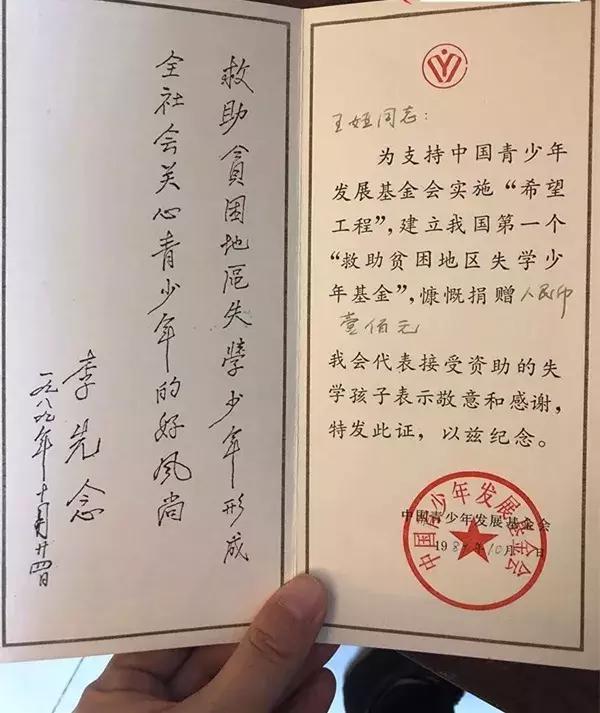 救助貧困地區失學少年形成
全社会关心青少年的好风尚
李先念
一九八九年十月廿四日
王娅同志:
为支持中国青少年
发展基金会实施“希望
工程”,建立我国第一个
“救助贫困地区失学少
年基金”,慷慨捐赠人民币
壹佰元
我会代表接受资助的失
学孩子表示敬意和感谢,
特发此证,以兹纪念。
中国青少年发展基金会
1989年10月 日
中国青少年发展基金会